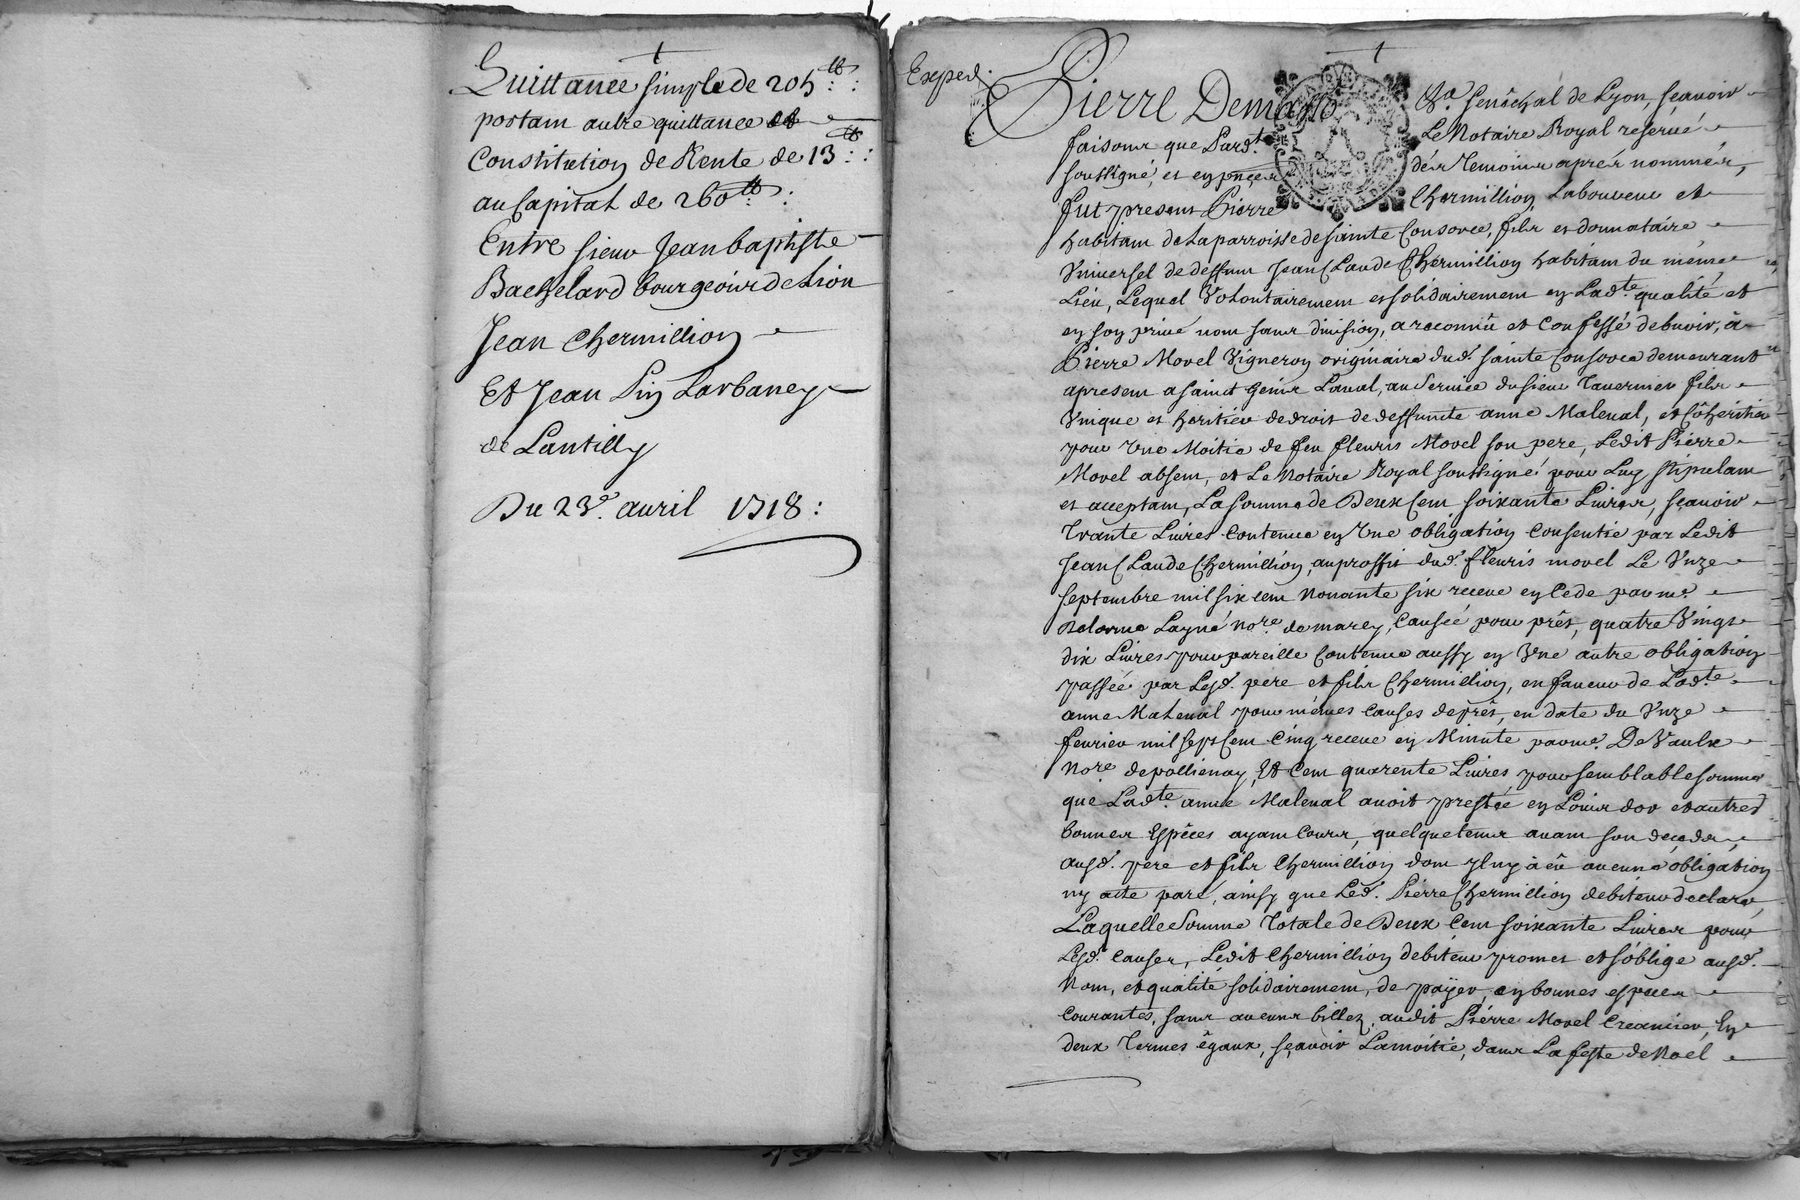 Quittance simple de 205 ℔ :
portant autre quittance et
Constitution de Rente de 13 ℔ :
au Capital de 260 ℔ :
Entre sieur Jean baptiste
Bachelard bourgeois de Lion
Jean Chermillion
Et Jean Pin Larbaney
de Lantilly
Du 23e. avril 1718 :
Exped.
Pierre De Senéchal de Lyon, sçavoir
faisons que Pardt. Le Notaire Royal reservé
soussigné, et en pnçes des Temoins aprés nommés,
fut present Pierre Chermillion Laboureur et
habitant de La parroisse de sainte Consorce, fils et donnataire
Universel de deffunt Jean Claude Chermillion habitant du méme
Lieu, Lequel Volontairement et solidairement en Ladte. qualité et
en son privé nom sans division, a reconnû et Confessé debvoir, à
Pierre Morel Vigneron originaire dud. sainte Consorce demeurant
a present a saint Genis Laval, au Service du sieur Tavernier fils
Unique et heritier de droit de deffunte anne Maleval, et Côheritier
pour Une Moitié de feu fleuris Morel son pere, Ledit Pierre
Morel absent, et Le Notaire Royal soussigné pour Luy stipulant
et acceptant, La somme de Deux Cent soixante Livres, sçavoir
Trante Livres Contenue en Une obligation Consentie par Ledit
Jean Claude Chermillion, au proffit dud. fleuris morel Le Unze
septembre mil six cent Nonante six receue en Cede par me.
Delorme Layné Nore. de marcy, Causée pour prêt, quatre Vingt
dix Livres pour pareille Contenue aussy en Une autre obligation
passée par Lesd. pere et fils Chermillion, en faveur de Ladte.
anne Maleval pour mémes Causes de prêt, en date du Unze
fevrier mil sept Cent Cinq receue en Minute par me. De Vaulx
Nore. de pollienay, Et Cent quarente Livres pour semblable somme
que Ladte. anne Maleval avoit prestée en Louis dor et autres
bonnes Espêces ayant Cours, quelque tems avant son decéds,
ausd. pere et fils Chermillion dont Il ny à eû aucune obligation
ny acte paré, ainsy que Led. Pierre Chermillion debiteur declare,
Laquelle Somme Totale de Deux Cent soixante Livres pour
Lesd. Causes, Ledit Chermillion debiteur promet et s'oblige ausd.
Nom, et qualité solidairement, de païyer, en bonnes especes
Courantes, sans aucuns billez, audit Pierre Morel Creancier, En
deux Termes égaux, sçavoir Lamoitié, dans La feste de Noel